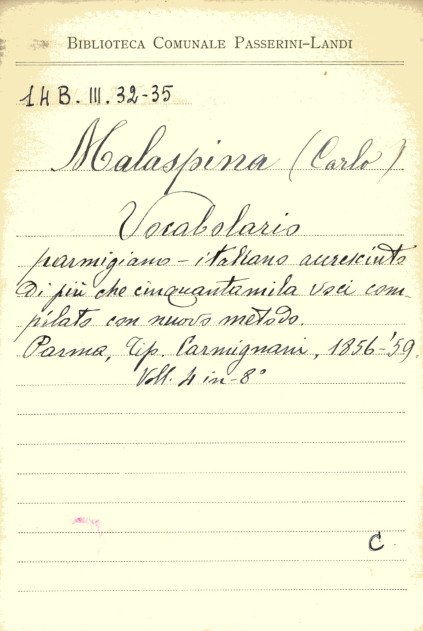 BIBLIOTECA COMUNALE PASSERINI-LANDI
14 B. III. 32-35
Malaspina (Carlo)
Vocabolario
parmigiano-italiano accresciuto
di più che cinquantamila voci com-
pilato con nuovo metodo.
Parma, Tip. Carmignani, 1856-'59.
Voll. 4 in-8°
C